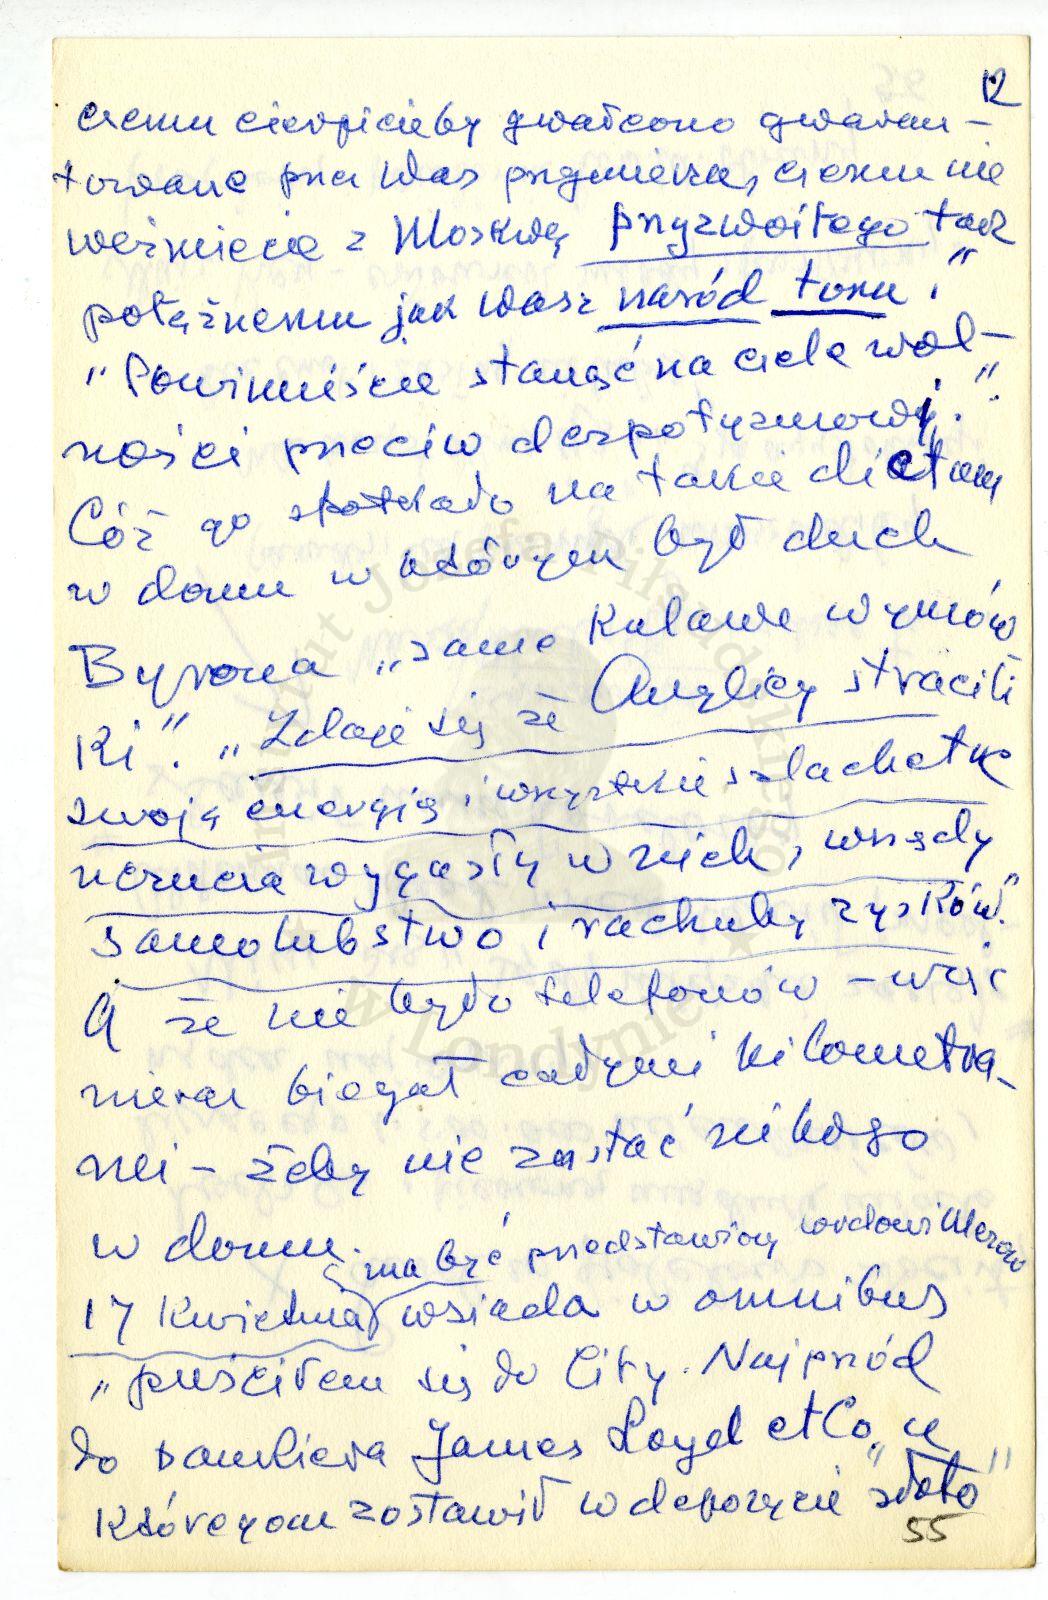 12
czemu cierpicie by gwałcono gwaran-
towane przez Was przymierza, czemu nie
weźmiecie z Moskwą przyzwoitego tak
potężnemu jak Wasz naród tonu."
"Powinniście stanąć na czele wol-
ności przeciw despotyzmowi."
Cóż go spotkało na takie dictum
w domu w którym był duch
Byrona "same kulawe wymów
ki". "Zdaje się że Anglicy stracili
swoją energię i wszystkie szlachetne
uczucia wygasły w nich, wszędy
samolubstwo i rachuby zysków."
A że nie było telefonów – więc
nieraz biegał całymi kilometra-
mi – żeby nie zastać nikogo
w domu.
ma być przedstawiony lordowi
17 Kwietnia wsiada w omnibus
"puściłem się do City. Najprzód
do bankiera James Loyd et Co. u
któregom zostawił w depozycie "złoto"
55
Instytut Józefa Piłsudskiego
w Londynie